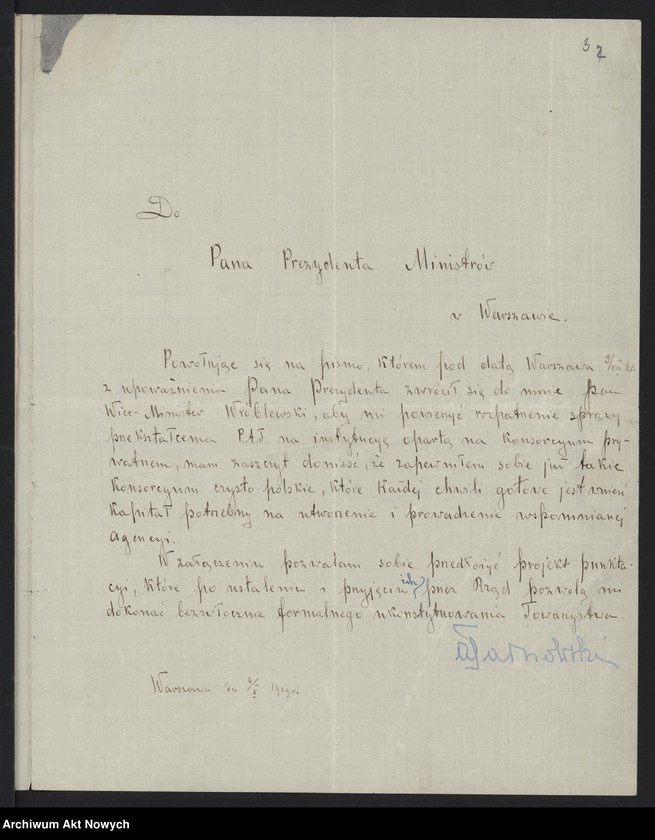 3 2
Do
Pana Prezydenta Ministrów
w Warszawie.
Powołując się na pismo, którem pod datą Warszawa 9/VIII br.
z upoważnienia Pana Prezydenta zwrócił się do mnie Pan
Wice-Minister Wróblewski, aby mi powierzyć rozpatrzenie sprawy
przekształcenia P.A.T. na instytucyę opartą na konsorcyum pry-
watnem, mam zaszczyt donieść, że zapewniłem sobie już takie
konsorcyum czysto polskie, które każdej chwili gotowe jest wnieść
kapitał potrzebny na utworzenie i prowadzenie wspomnianej
agencyi.
W załączeniu pozwalam sobie przedłożyć projekt punkta-
cyi, które po ustaleniu i przyjęciu ich przez Rząd pozwolą mi
dokonać bezwłocznie formalnego ukonstytuowania Towarzystwa.
Warszawa dn 4/X 1919 r.
Archiwum Akt Nowych